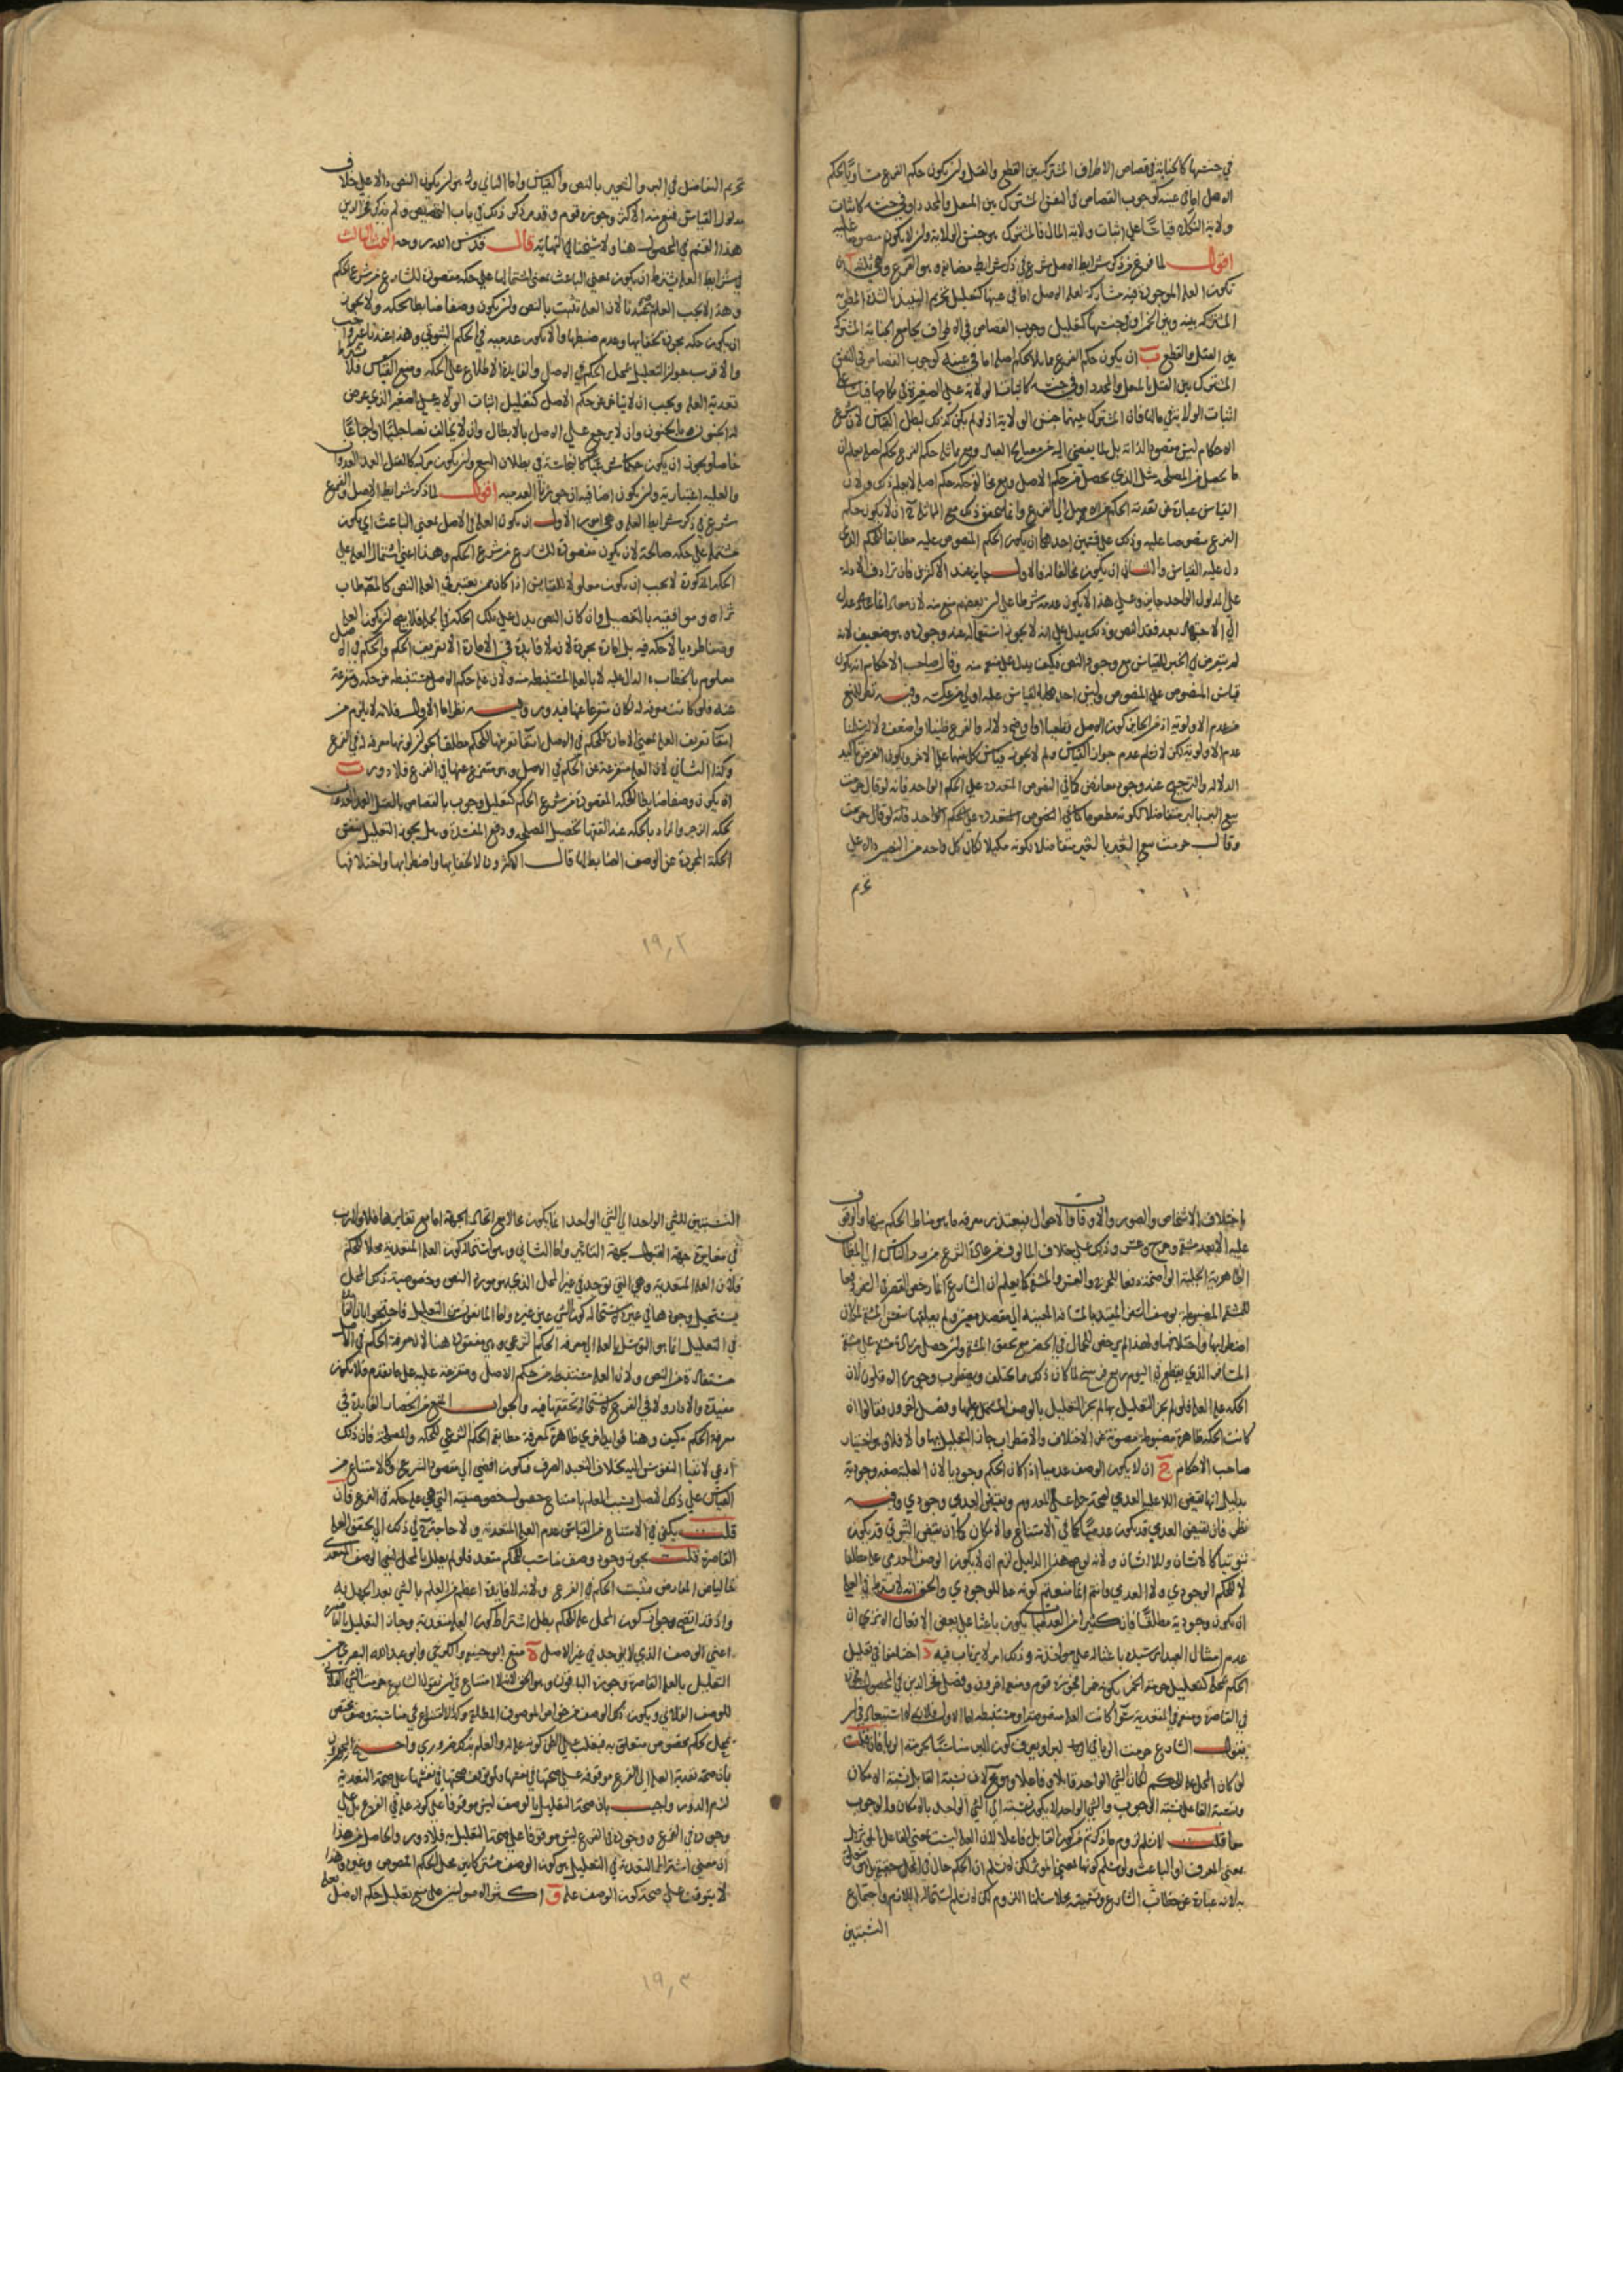 في جنسها كالجناية في قصاص الاطراف المشترك بين القطع والقتل وان يكون حكم الفرع مساويا لحكم
الاصل اما في عينه كوجوب القصاص في النفس المشترك بين المثقل والمحدد او في جنسه كاثبات
ولاية النكاح قياسا على اثبات ولاية المال فالمشترك هو جنس الولاية وان لا يكون منصوصا عليه
اقول لما فرغ من ذكر شرايط الاصل شرع في ذكر شرايط مضاهيه وهو الفرع وهي ثلثه ا ان
تكون العلة الموجودة فيه مشاركة لعلة الاصل اما في عينها كتعليل تحريم النبيذ بالشدة المطربة
المشتركة بينه وبين الخمر او في جنسها كتعليل وجوب القصاص في الاطراف بجامع الجناية المشتركة
بين القتل والقطع ب ان يكون حكم الفرع مماثلا لحكم اصله اما في عينه كوجوب القصاص في النفس
المشترك بين القتل بالمثقل والمحدد او في جنسه كاثباتنا الولاية على الصغيرة في نكاحها قياسا على
اثبات الولاية في مالها فان المشترك بينهما جنس الولاية اذ لو لم يكن كذلك لبطل القياس لان شرع
الاحكام ليس مقصودا لذاته بل لما يفضي اليه من مصالح العباد ومع مماثلة حكم الفرع لحكم اصله يعلم ان
ما يحصل من المصلحة مثل الذي يحصل من حكم الاصل ومع مخالفة حكمه حكم اصله لا يعلم ذلك ولان
القياس عبارة عن تعدية الحكم من الاصل الى الفرع وانما يتحقق ذلك مع المماثلة ج ان لا يكون حكم
الفرع منصوصا عليه وذلك على قسمين احدهما ان يكون الحكم المنصوص عليه مطابقا للحكم الذي
دل عليه القياس والثاني ان يكون مخالفا له والاول جايز عند الاكثرين فان ترادف الادلة
على المدلول الواحد جايز وعلى هذا لا يكون عدمه شرطا على ان بعضهم منع منه لان معاذا انما عدل
الى الاجتهاد بعد فقد النص وذلك يدل على انه لا يجوز استعماله عند وجوده وهو ضعيف لانه
لم يتعرض في الخبر للقياس مع وجود النص فكيف يدل على منعه منه وقال صاحب الاحكام انه يكون
قياس المنصوص على المنصوص وليس احدهما بالقياس عليه اولى من عكسه وفيه نظر للمنع
من عدم الاولوية اذ من الجايز كون الاصل قطعيا او اوضح دلالة والفرع ظنيا او اضعف دلالة سلمنا
عدم الاولوية لكن لا نسلم عدم جواز القياس ولم لا يجوز قياس كل منهما على الاخر ويكون الغرض تاكيد
الدلالة والترجيح عند وجود معارض كما في النصوص المتعددة على الحكم الواحد فانه لو قال حرمت
بيع البر بالبر متفاضلا لكونه مطعوما كما في النصوص المتعددة على الحكم الواحد فانه لو قال حرمت
وقال حرمت بيع الشعير بالشعير متفاضلا لكونه مكيلا لكان كل واحد من النصين دالا على
تحريم
تحريم التفاضل في البر والشعير بالنص والقياس واما الثاني وهو ان يكون النص دالا على خلاف
مدلول القياس فمنع منه الاكثر وجوزه قوم وقد مر ذكر ذلك في باب التخصيص ولم يذكر فخر الدين
هذا القسم في المحصول هنا ولا شيخنا في النهاية قال قدس الله روحه البحث الثالث
في شرايط العلة يشترط ان يكون بمعنى الباعث بمعنى اشتمالها على حكمة مقصودة للشارع من شرع الحكم
وهذا لا يجب العلم به عندنا لان العلة تثبت بالنص وان يكون وصفا ضابطا لحكمة ولا يجوز
ان يكون حكمة مجردة لخفائها وعدم ضبطها والا يكون عدمية في الحكم الثبوتي وهذا عندنا غير واجب
والاقرب جواز التعليل بمحل الحكم في الاصل والفايدة الاطلاع على الحكمة ومنع القياس فلا شرط
تعدية العلة ويجب ان لا يتاخر عن حكم الاصل كتعليل اثبات الولاية على الصغير الذي عرض
له الجنون بالجنون وان لا يرجع على الاصل بالابطال وان لا يخالف نصا جليا او اجماعا
خاصا ويجوز ان يكون حكما شرعيا كالنجاسة في بطلان البيع وان يكون مركبة كالقتل العمد العدوان
والعلية اعتبارية وان يكون اضافية ان جوزنا العدمية اقول لما ذكر شرايط الاصل والفرع
شرع في ذكر شرايط العلة وهي امور الاول ان يكون العلة في الاصل بمعنى الباعث اي يكون
مشتملة على حكمة صالحة لان يكون مقصودة للشارع من شرع الحكم وهذا اعني اشتمال العلة على
الحكمة المذكورة لا يجب ان يكون معلوما للقايس اذا كان ممن يعتبر في العلة النص كالمصطاب
ثراه وموافقيه بالتفصيل وان كان النص يدل على تلك الحكمة في الجملة فلا يصح ان يكون العلة
وصفا طرديا لا حكمة فيه بل امارة مجردة لانه لا فايدة في الامارة الا تعريف الحكم والحكم في الاصل
معلوم بالخطاب الدال عليه لا بالعلة المستنبطة منه ولان علة حكم الاصل مستنبطة من حكمه ومتفرعة
عنه فلو كانت معرفة له لكان متفرعا عنها فيدور وفيه نظر اما الاول فلانه لا يلزم من
انتفا تعريف العلة بمعنى الامارة للحكم في الاصل انتفا تعريفها للحكم مطلقا لجواز كونها معرفة له في الفرع
وكذا الثاني لان العلة متفرعة عن الحكم في الاصل وهو متفرع عنها في الفرع فلا دور ب
ان يكون وصفا ضابطا لحكمة المقصودة من شرع الحكم كتعليل وجوب القصاص بالقتل العمد العدوان
لحكمة الزجر والمراد بالحكمة عند الفقها تحصيل المصلحة ودفع المفسدة وهل يجوز التعليل بنفس
الحكمة المجردة عن الوصف الضابط لها قال الاكثرون لا لخفايها واضطرابها واختلافها
١٩٠٢
باختلاف الاشخاص والصور والاوقات والاحوال فيتعذر معرفة ما هو مناط الحكم منها والوقوف
عليه الا بعد مشقة وحرج وعسر وذلك على خلاف المالوف من عادة الشرع من رد الناس الى المظان
الظاهرة الجلية الواضحة دفعا للحرج والعسر والمشقة كما يعلم ان الشارع انما رخص القصر في السفر دفعا
للمشقة المضبوطة بوصف السفر المقيد بالمسافة المعينة الى مقصد معين ولم يعلقها بنفس المشقة لمكان
اضطرابها واختلافها ولهذا لم يرخص للحمال في الحضر مع تحقق المشقة وان حصل زيادة مشقة على مشقة
المسافر الذي يقطع في اليوم ربع فرسخ لما كان ذلك مما يختلف ويضطرب وجوزه الاقلون لان
الحكمة علة العلة فلو لم يجز التعليل بها لم يجز التعليل بالوصف المشتمل عليها وفصل اخرون فقالوا ان
كانت الحكمة ظاهرة مضبوطة مصونة عن الاختلاف والاضطراب جاز التعليل بها والا فلا وهو اختيار
صاحب الاحكام ج ان لا يكون الوصف عدميا اذا كان الحكم وجوديا لان العلية صفة وجودية
بدليل انها نقيض اللاعلية العدمي لصحة حملها على المعدوم ونقيض العدمي وجودي وفيه
نظر فان نقيض العدمي قد يكون عدميا كما في الامتناع والامكان كما ان نقيض الثبوتي قد يكون
ثبوتيا كالانسان واللاانسان ولانه لو صح هذا الدليل لزم ان لا يكون الوصف العدمي علة مطلقا
لا للحكم الوجودي ولا العدمي وانتم انما منعتم كونه علة للوجودي والحق انه لا يشترط في العلة
ان يكون وجودية مطلقا فان كثيرا من العدميات يكون باعثا على بعض الافعال الا ترى ان
عدم امتثال العبد امر سيده باعث له على مواخذته وذلك امر لا يرتاب فيه د اختلفوا في تعليل
الحكم بمحله كتعليل حرمة الخمر بكونه خمرا فجوزه قوم ومنعه اخرون وفصل فخر الدين في المحصول فجوزه
في القاصرة ومنعه في المتعدية سوا كانت العلة منصوصة او مستنبطة اما الاول فلانه لا استبعاد في ان
يقول الشارع حرمت الربا في البر لكونه برا او يعرف كون البر مناسبا لحرمة الربا فان قلت
لو كان المحل علة للحكم لكان الشي الواحد قابلا وفاعلا وهو مح لان نسبة القابل نسبة الامكان
ونسبة الفاعل نسبة الوجوب والشي الواحد لا يكون نسبته الى الشي الواحد بالامكان والوجوب
معا قلت لا نسلم لزوم ما ذكرتم من كون القابل فاعلا لان العلة ليست بمعنى الفاعل الموثر بل
بمعنى المعرف او الباعث ولو سلم كونها بمعنى الموثر لكن لا نسلم ان الحكم حال في المحل حقيقة بل هو متعلق
به لانه عبارة عن خطاب الشارع وتسميته محلا سلمنا اللزوم لكن لا نسلم استحالة اللازم واجتماع
النسبتين
النسبتين للشي الواحد الى الشي الواحد انما يكون محالا مع اتحاد الجهة اما مع تغايرها فلا ولا ريب
في مغايرة جهة القبول لجهة التاثير واما الثاني وهو استحالة كون العلة المتعدية محلا للحكم
فلان العلة المتعدية وهي التي توجد في غير المحل الذي هو مورد النص وخصوصية ذلك المحل
يستحيل وجودها في غيره لاستحالة كون الشي عين غيره واما المانعون من التعليل فاحتجوا بان الفايدة
في التعليل انما هو التوسل بالعلة الى معرفة الحكم الشرعي وهي مفقودة هنا لان معرفة الحكم في الاصل
مستفادة من النص ولان العلة مستنبطة من حكم الاصل ومتفرعة عليه على ما تقدم فلا يكون
مفيدة والا دار ولا في الفرع لاستحالة تحققها فيه والجواب المنع من انحصار الفايدة في
معرفة الحكم كيف وهنا فوايد اخرى ظاهرة كمعرفة مطابقة الحكم الشرعي للحكمة والمصلحة فان ذلك
ادعى لانقياد النفوس اليه بخلاف التعبد الصرف فيكون افضى الى مقصود الشرع وكالامتناع من
القياس على ذلك الاصل بسبب العلم بامتناع حصول خصوصيته التي هي علة حكمه في الفرع فان
قلت يكفي في الامتناع من القياس عدم العلة المتعدية ولا حاجة في ذلك الى تحقق العلة
القاصرة قلت يجوز وجود وصف مناسب للحكم متعد فلو لم يعلل بالمحل لبقي الوصف المتعدي
خاليا عن المعارض فيثبت الحكم في الفرع ولانه لا فايدة اعظم من العلم بالشي بعد الجهل به
واذ قد اتضح جواز كون المحل علة للحكم بطل اشتراط كون العلة متعدية وجاز التعليل بالقاصرة
اعني الوصف الذي لا يوجد في غير الاصل ه منع ابو حنيفة والكرخي وابو عبد الله البصري من
التعليل بالعلة القاصرة وجوزه الباقون وهو الحق لانه لا امتناع في ان يقول الشارع حرمت الشي الفلاني
للوصف الفلاني ويكون ذلك الوصف من خواص الموصوف المطلقة وكذا لا امتناع في مناسبة وصف مختص
بمحل لحكم مخصوص متعلق به فيغلب على الظن كونه علة له والعلم بذلك ضروري واحتج المجوزون
بان صحة تعدية العلة الى الفرع موقوفة على صحتها في نفسها فلو توقفت صحتها في نفسها على صحة التعدية
لزم الدور واجيب بان صحة التعليل بالوصف ليس موقوفا على كونه علة في الفرع بل على
وجوده في الفرع ووجوده في الفرع ليس موقوفا على صحة التعليل به فلا دور والحاصل من هذا
ان معنى اشتراط التعدية في التعليل هو كون الوصف مشتركا بين محل الحكم المنصوص وغيره وهذا
لا يتوقف على صحة كون الوصف علة و اكثر الاصوليين على منع تعليل حكم الاصل بعلة
١٩٠٣